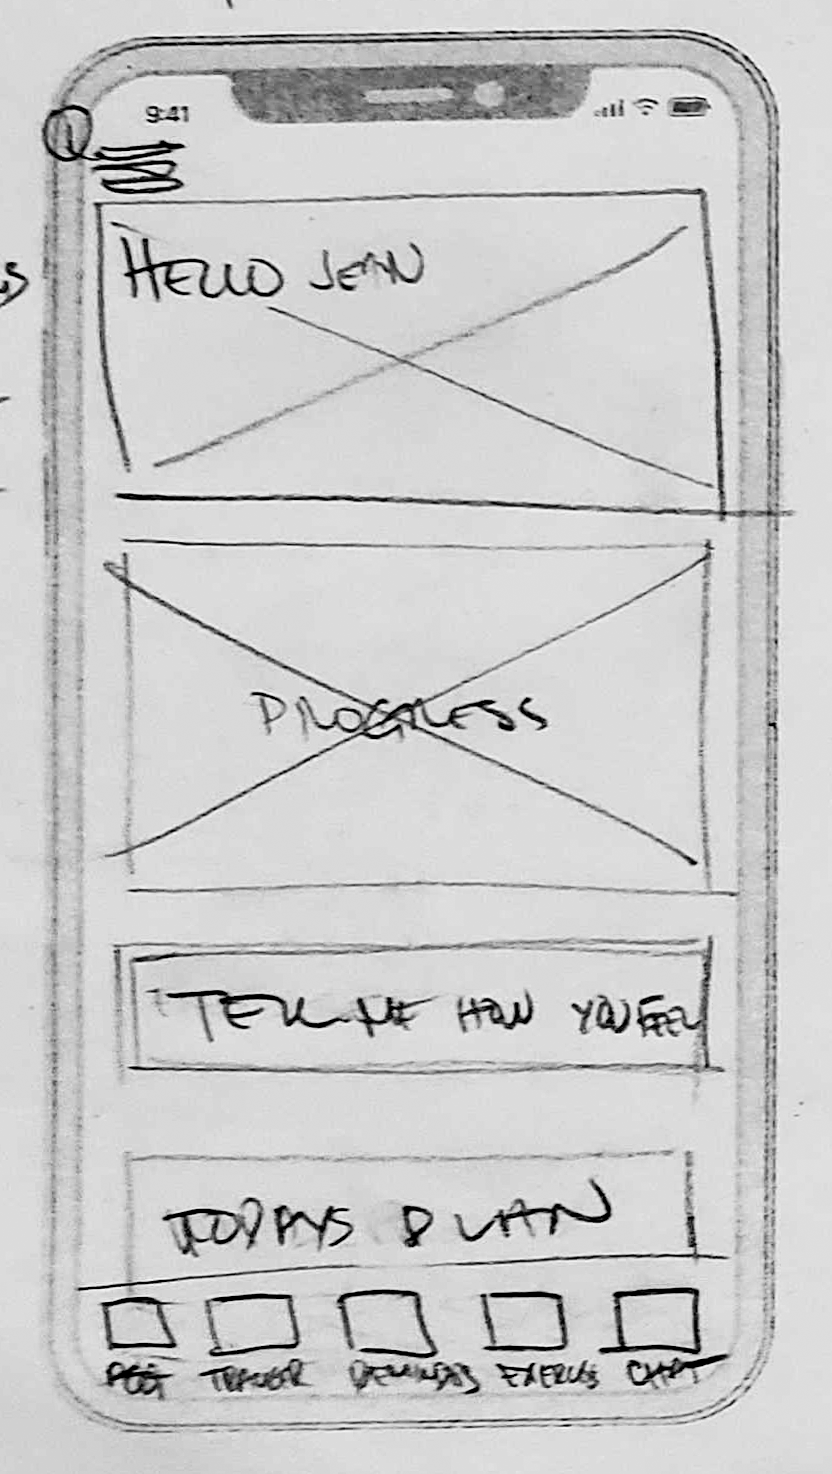 9:41
1
HELLO JEAN
PROGRESS
TELL ME HOW YOU FEEL
TODAYS PLAN
TRACKER REMINDERS EXERCISE CHAT